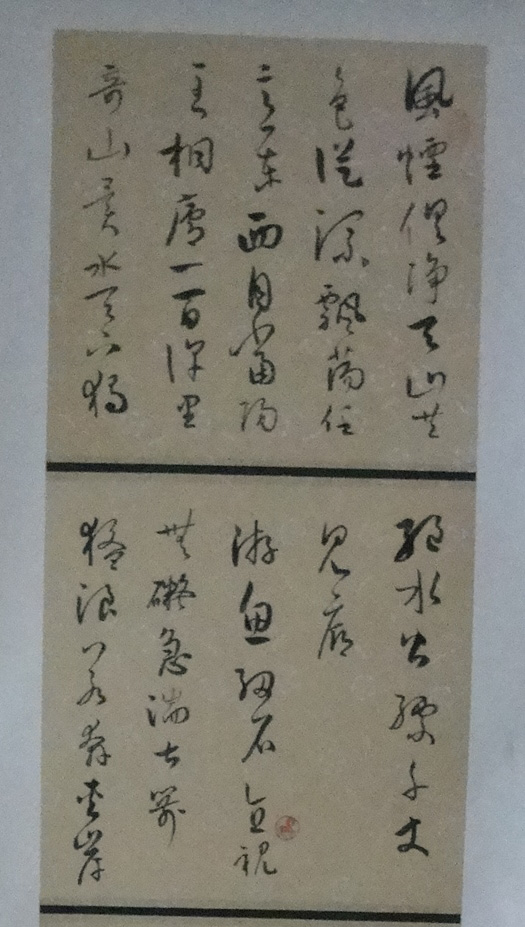 風煙俱淨天山共
色從流飄蕩任
意東西自富陽
至桐廬一百許里
奇山異水天下獨
絕水皆縹千丈
見底
游魚細石直視
無礙急湍甚箭
猛浪若奔夾岸